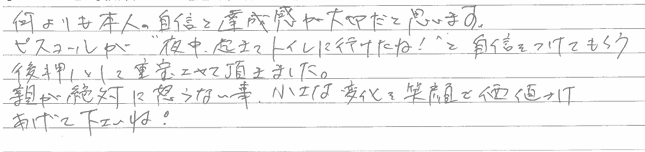 何よりも本人の自信と達成感が大切だと思います。
ピスコールが“夜中、起きてトイレに行けたね！”と自信をつけてもらう
後押しとして重宝させて頂きました。
親が絶対に怒らない事、小さな変化を笑顔で価値づけ
あげて下さいね！